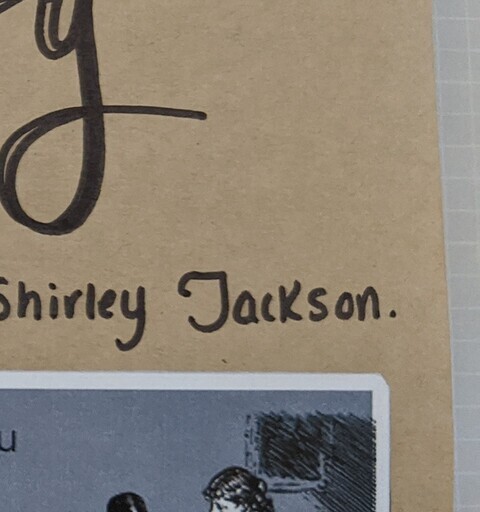 y
Shirley Jackson.
u